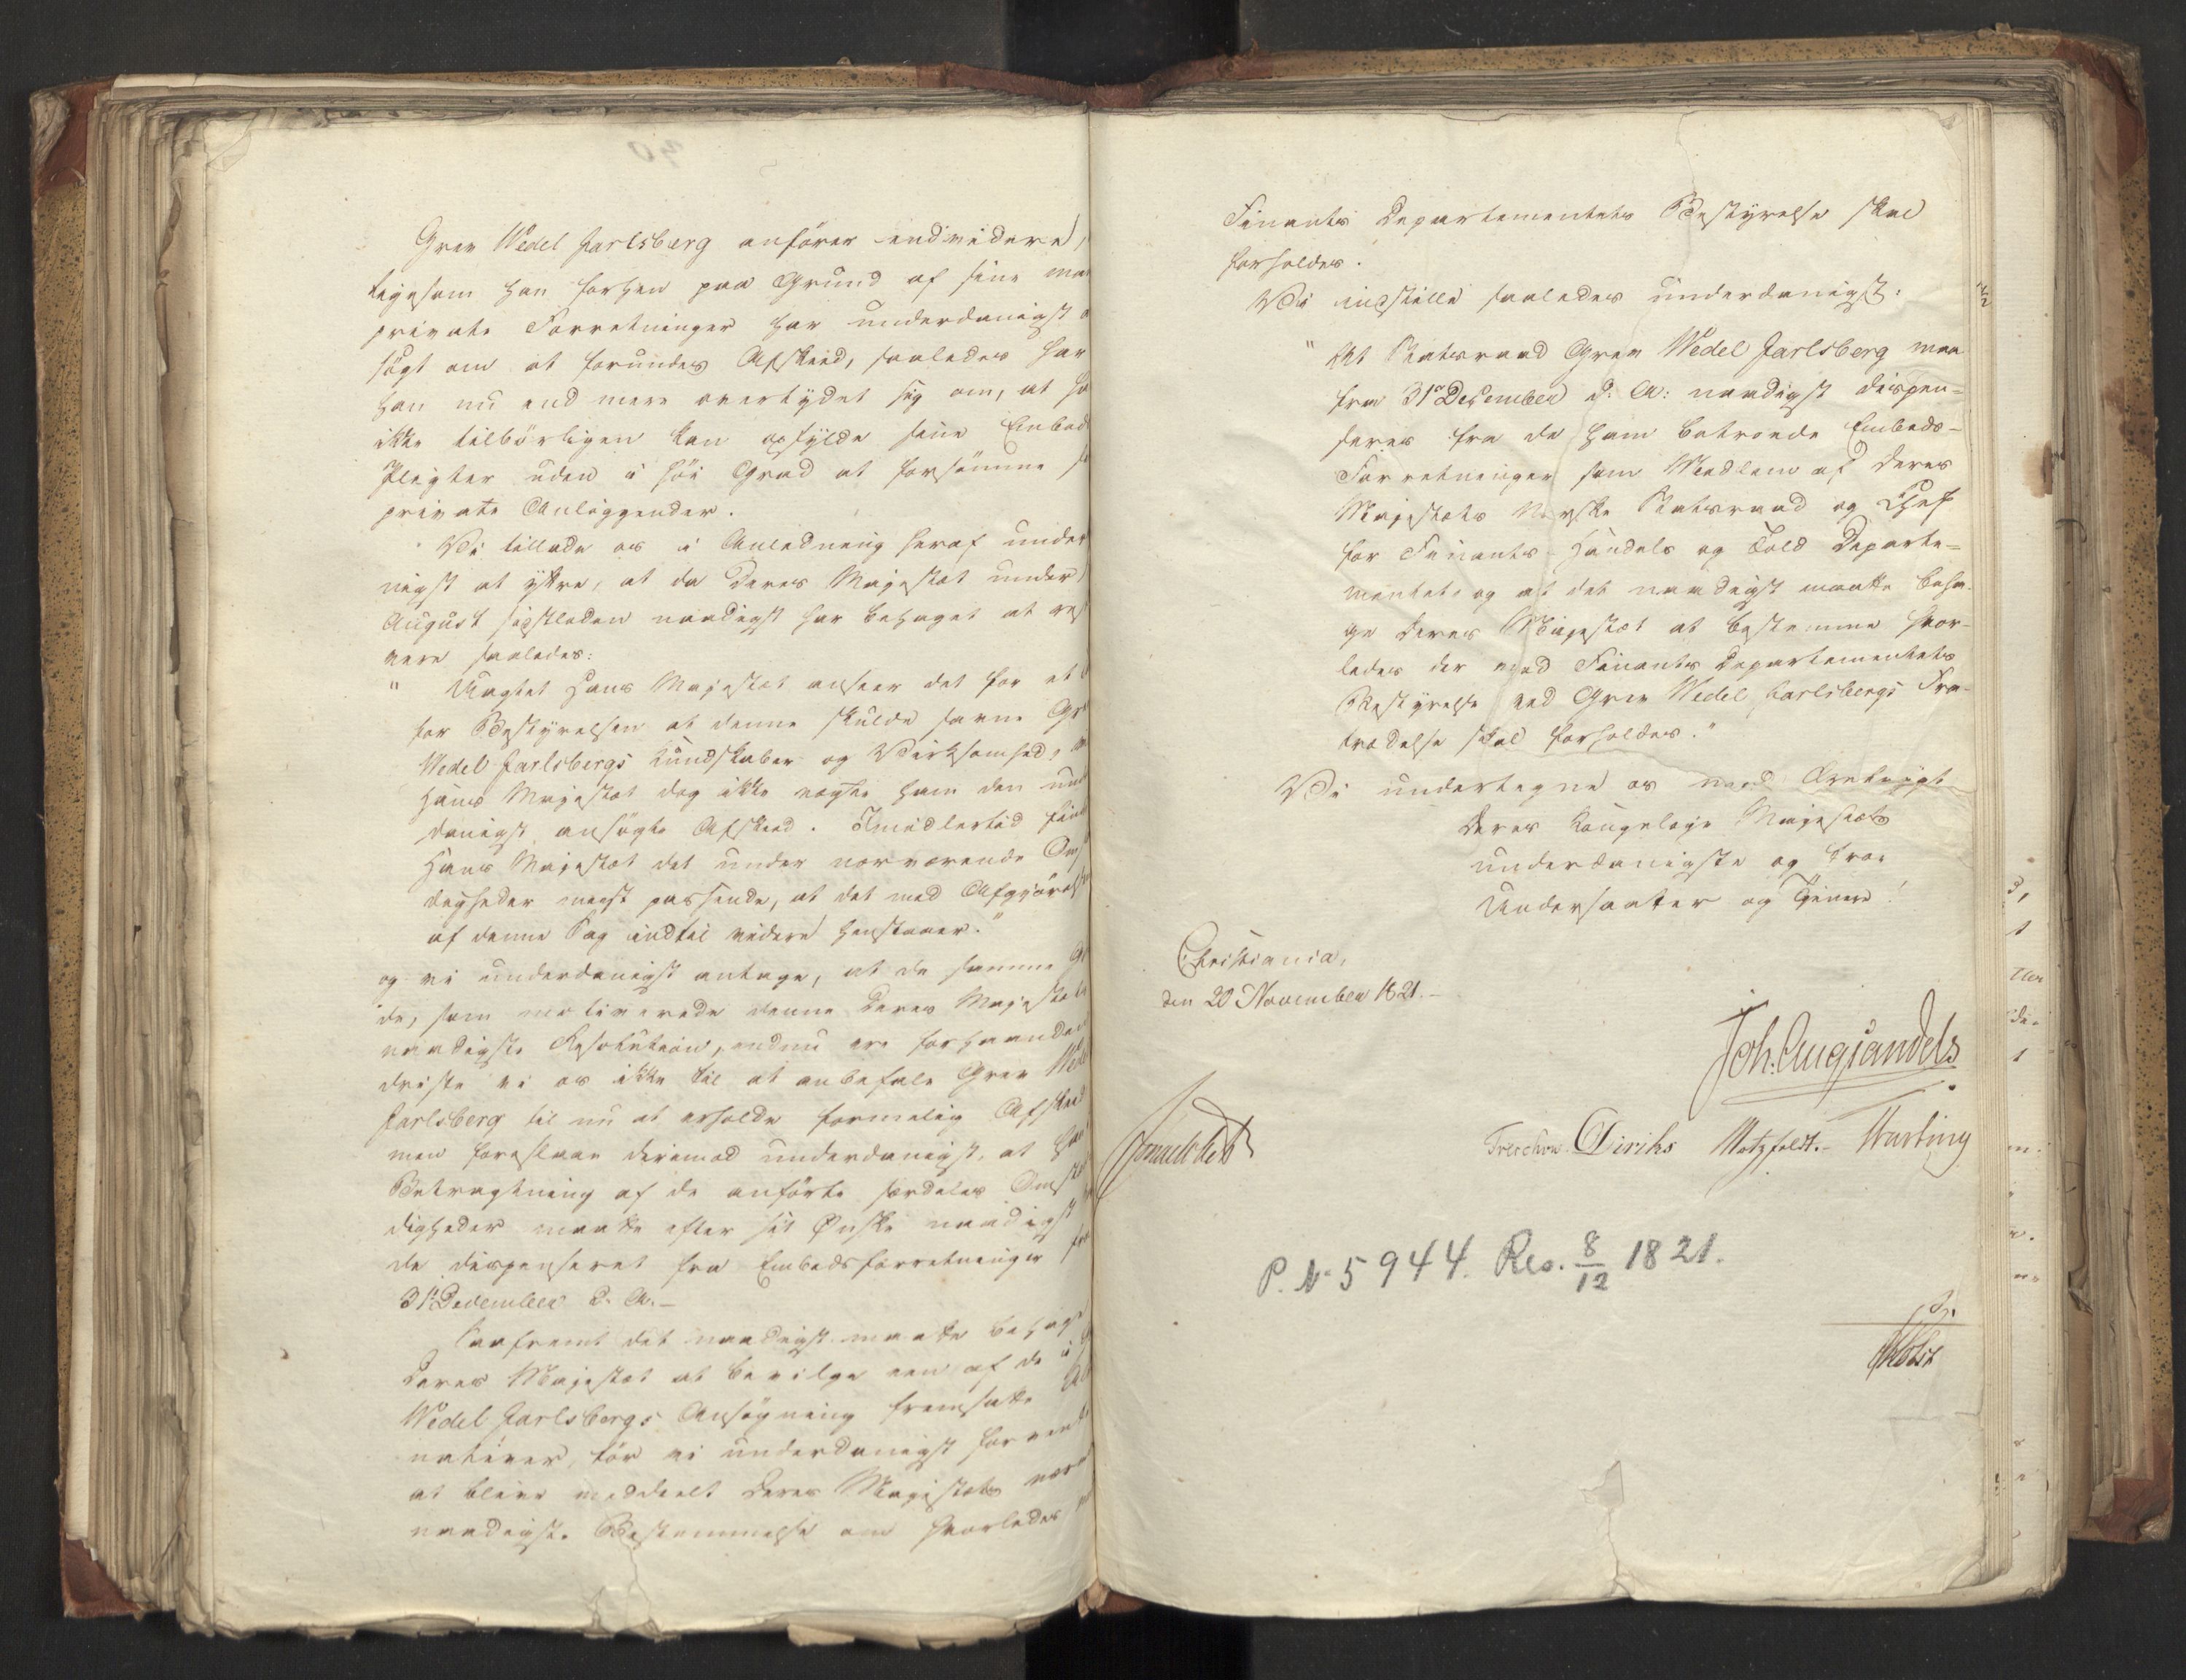 Grev Wedel Jarlsberg anfører endvidere,
ligesom han forhen paa Grund af sine
private Forretninger har underdanigst
søgt om at forundes Afskeed, saaledes har
han nu end mere overtydet sig om, at
ikke tilbørligen kan opfylde sine Embeds
Pligter uden i høi Grad at forsømme
private Anliggender.
Vi tillade os i Anledning heraf under
nigst at yttre, at da Deres Majestæt under
August sidstleden naadigst har behaget at
vere saaledes:
" Uagtet Hans Majestæt anseer det for et
for Bestyrelsen at denne skulde savne
Wedel Jarlsbergs Kundskaber og Virksomhed,
Hans Majestæt dog ikke nægte ham den
danigst ansøgte Afskeed. Imidlertid
Hans Majestæt det under nærværende
digheder meest passende, at det med Afgjørelsen
af denne Sag indtil videre henstaaer."
og vi underdanigst antage, at de samme
de, som motiverede denne Deres Majestæts
naadigste Resolution, endnu ere forhaanden
driste vi os ikke til at anbefale Grev
Jarlsberg til nu at erholde formelig Afskeed
men foreslaae derimod underdanigst, at
Betragtning af de anførte særdeles
digheder maatte efter sit Ønske naadigst
de dispenseret fra Embedsforretninger fra
31te December d. A.-
Saafremt det naadigst maatte behage
Deres Majestæt at bevilge een af de
Wedel Jarlsbergs Ansøgning fremsatte
nativer, tør vi underdanigst
at blive meddeelt Deres Majestæts
naadigste Bestemmelse om hvorledes
Finants Departementets Bestyrelse skal
forholdes.
Vi indstille saaledes underdanigst:
" At Statsraad Grev Wedel Jarlsberg maa
fra 31te December d: A: naadigst dispen=
seres fra de ham betroede Embeds-
Forretninger som Medlem af Deres
Majestæts Norske Statsraad og Chef
for Finants- Handels og Told Departe=
mentet, og at det naadigst maatte beha-
ge Deres Majestæt at bestemme hvor-
ledes der med Finants Departementets
Bestyrelse ved Grev Wedel Jarlsbergs Fra-
trædelse skal forholdes."
Vi undertegne os med Ærefrygt
Deres Kongelige Majestæts
underdanigste og troe
Undersaatter og Tjenere!
Christiania,
den 20 November 1821.-
Joh: Aug: Sandels
Treschow. Diriks Motzfeldt.-
P. No 5944. Res. 8/12 1821.
Holst